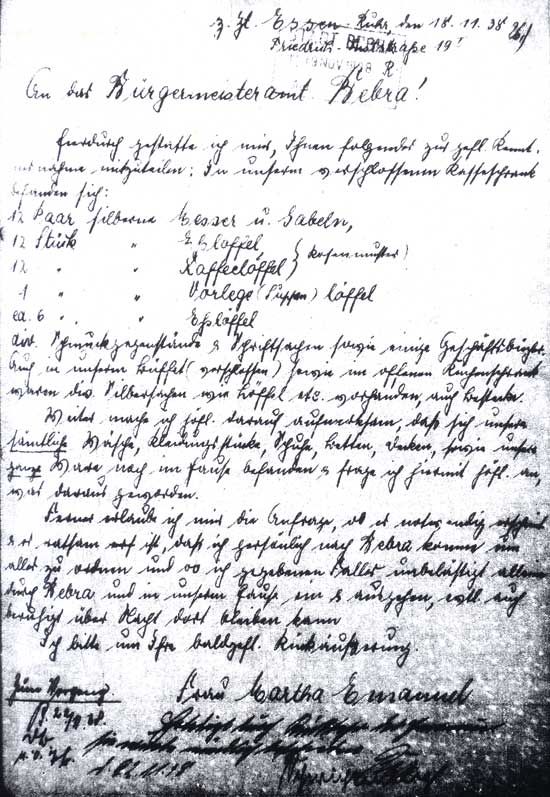 z. Zt. Essen-Ruhr, den 18.11.38
Friedrich straße 19 I
An das Bürgermeisteramt Bebra!
Hierdurch gestatte ich mir, Ihnen folgendes zur gefl. Kennt-
nisnahme mitzuteilen: In unserem verschlossenen Kassenschrank
befanden sich:
12 Paar silberne Messer u. Gabeln,
12 Stück " Eßlöffel
12 " " Kaffeelöffel } (Rosenmuster)
1 " " Vorlege (Suppen) löffel
ca. 6 " " Eßlöffel
div. Schmuckgegenstände & Schriftsachen sowie einige Geschäftsbücher.
Auch in unserem Büffet (verschlossen) sowie im offenen Küchenschrank
waren div. Silbersachen wie Löffel etc. vorhanden, auch Bestecke.
Weiter mache ich höfl. darauf aufmerksam, daß sich unsere
sämtliche Wäsche, Kleidungsstücke, Schuhe, Betten, Decken, sowie unsere
ganze Ware noch im Hause befanden & frage ich hiermit höfl. an,
was daraus geworden.
Ferner erlaube ich mir die Anfrage, ob es notwendig erscheint
& es ratsam ist, daß ich persönlich nach Bebra komme um
alles zu ordnen und wo ich gegebenen Falles unbelästigt allein
durch Bebra und in unserem Hause ein & ausgehen, evtl. auch
beruhigt über Nacht dort bleiben kann
Ich bitte um Ihre baldgefl. Rückäußerung.
Frau Martha Emanuel
Zum Vorgang.